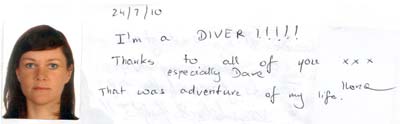 24/7/10
I'm a DIVER !!!!!
Thanks to all of you x x x
especially Dave
That was adventure of my life.